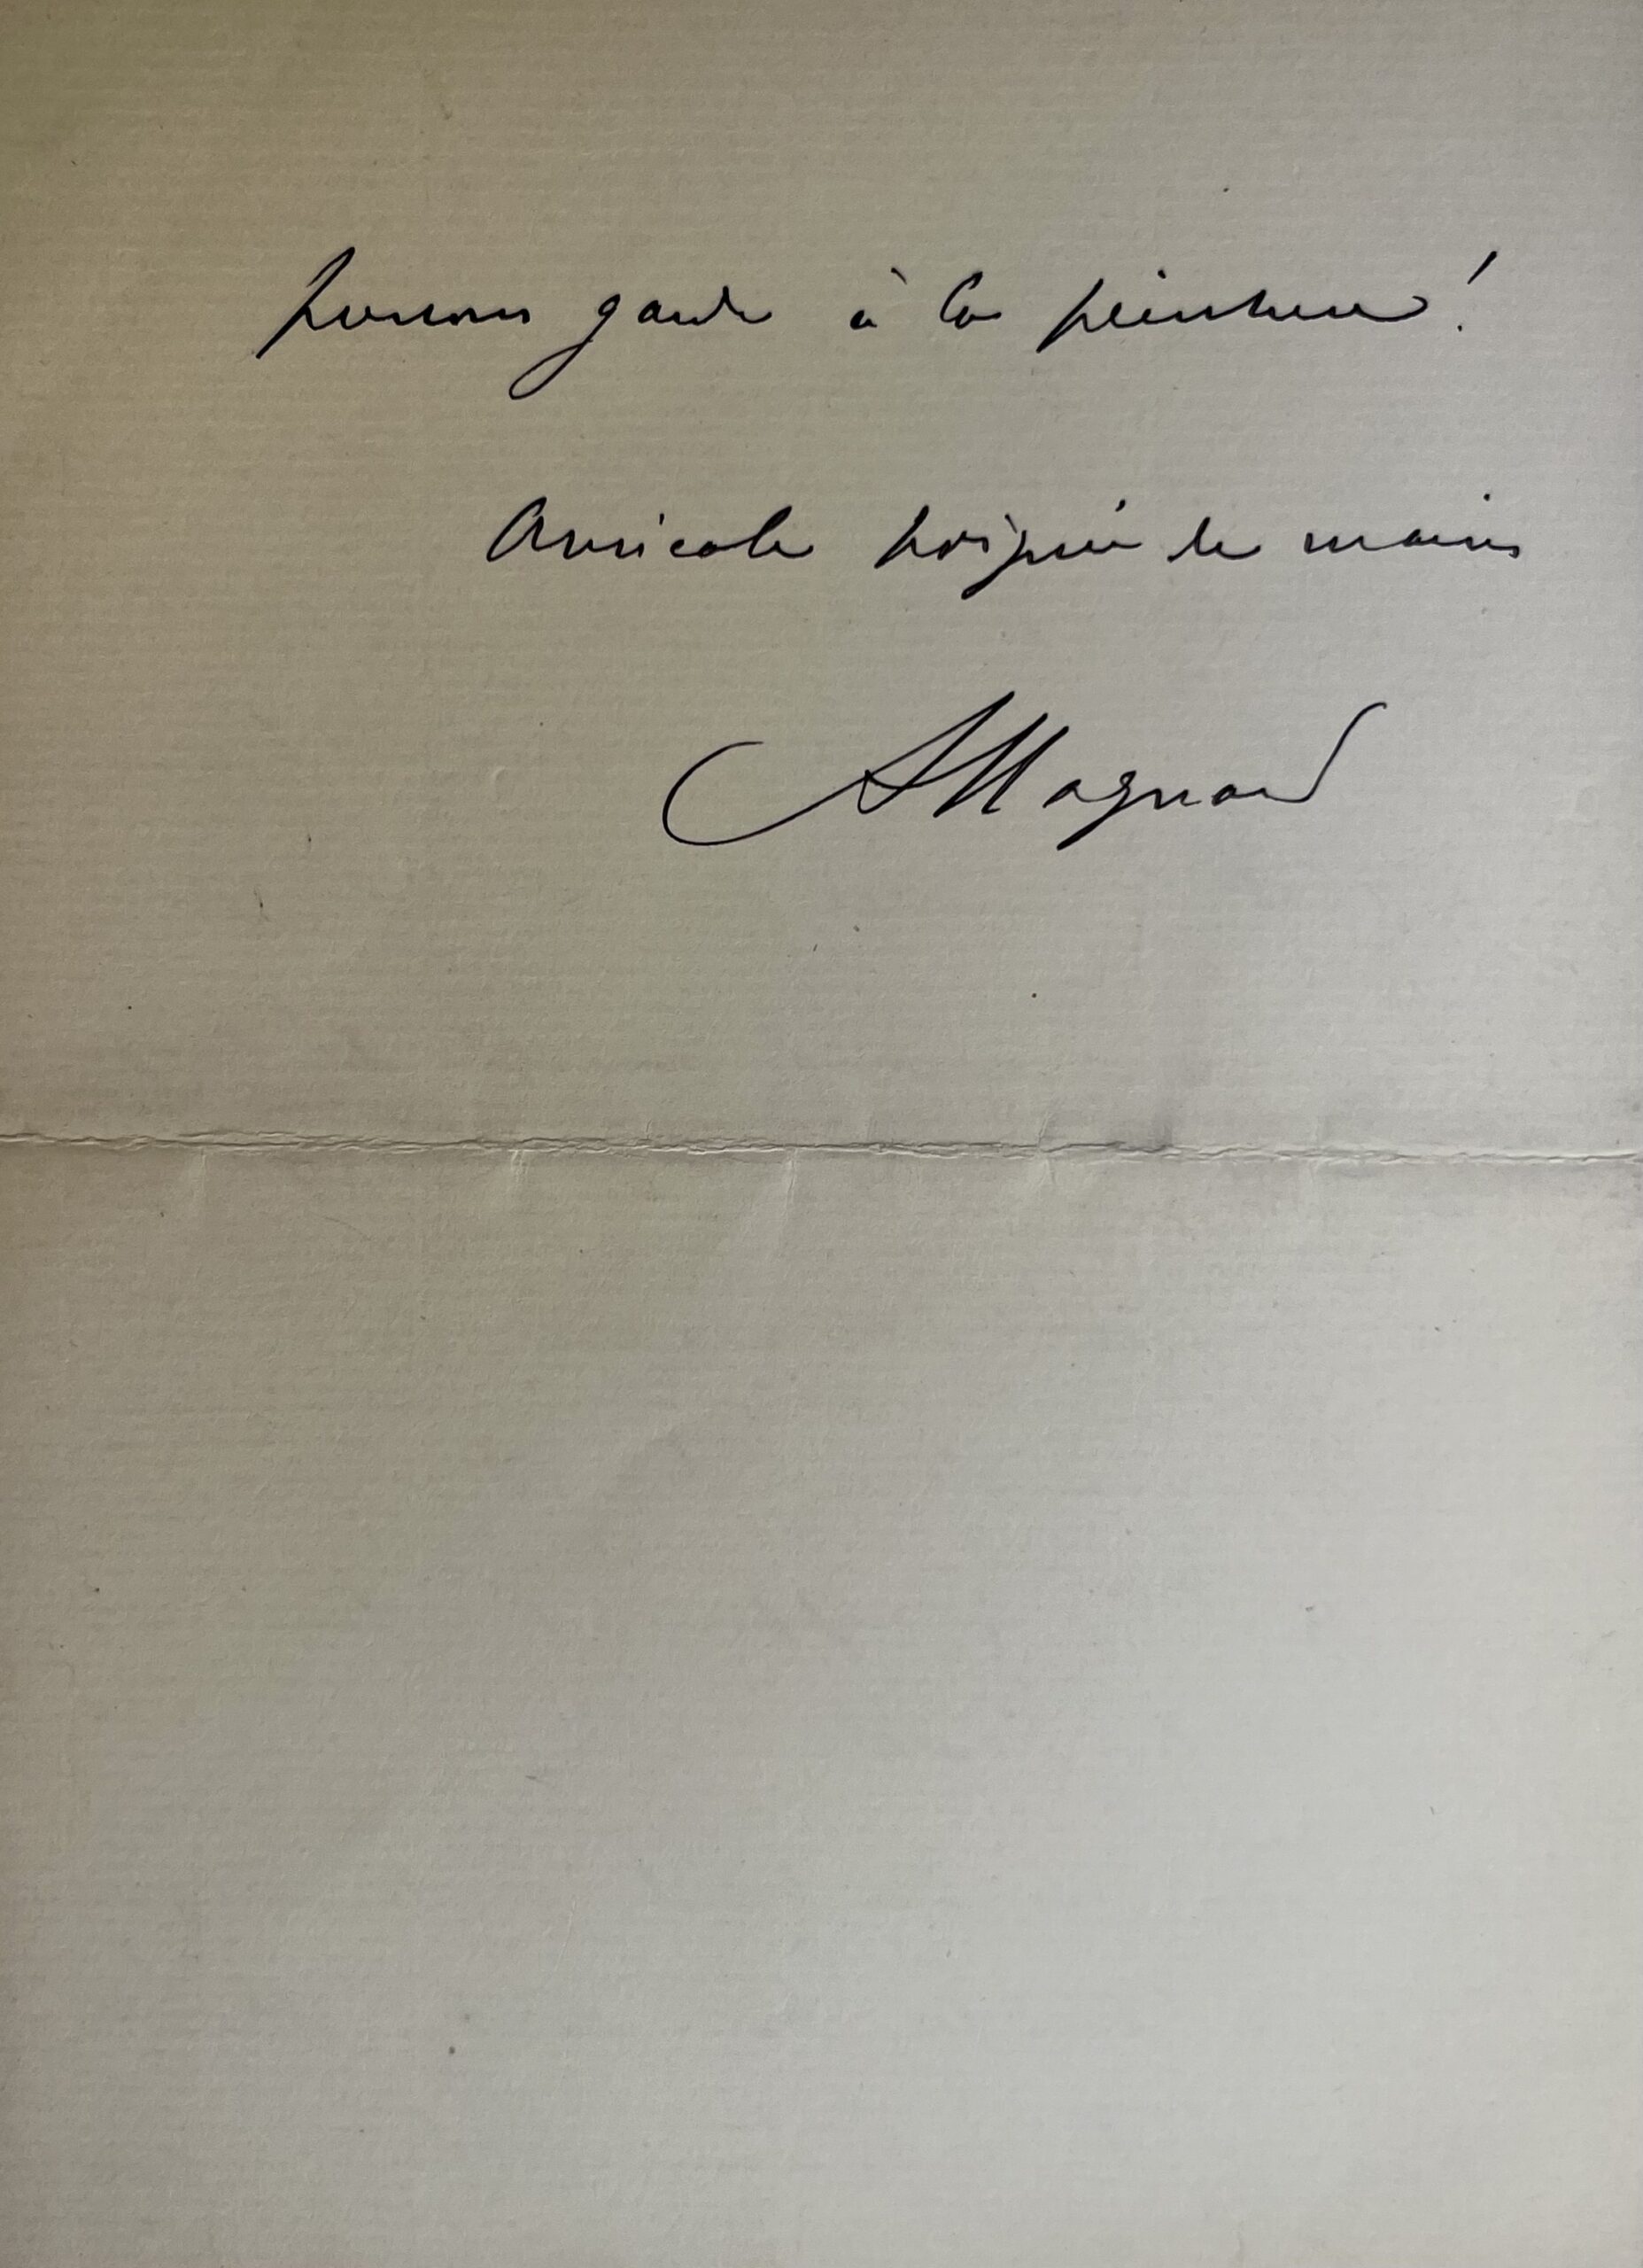 prenons garde à la peinture !
Amicale poignée de mains
AMagnard